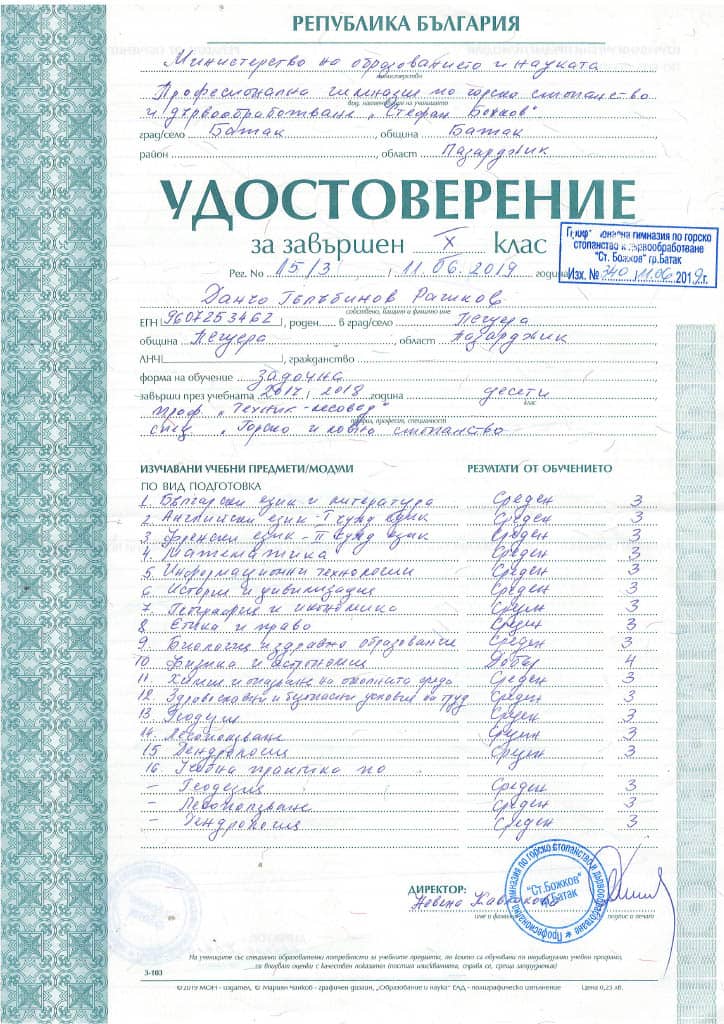 РЕПУБЛИКА БЪЛГАРИЯ
Министерство на образованието и науката
министерство
Професионална гимназия по горско стопанство
вид, наименование на училището
и дървообработване „Стефан Божков"
град/село Батак, община Батак
район, област Пазарджик
УДОСТОВЕРЕНИЕ
за завършен X клас
Професионална гимназия по горско
стопанство и дървообработване
"Ст. Божков" гр.Батак
Изх. № 340 / 11.06 2019г.
Рег. No 15/3, 11.06.2019 година
Данчо Гълъбинов Рашков
собствено, бащино и фамилно име
ЕГН 9607253462, роден в град/село Пещера
община Пещера, област Пазарджик
ЛНЧ, гражданство
форма на обучение задочна
завърши през учебната 2017 / 2018 година десети
клас
проф. „Техник-лесовъд"
профил, професия, специалност
спец. „Горско и ловно стопанство
ИЗУЧАВАНИ УЧЕБНИ ПРЕДМЕТИ/МОДУЛИ РЕЗУЛТАТИ ОТ ОБУЧЕНИЕТО
ПО ВИД ПОДГОТОВКА
1. Български език и литература Среден 3
2. Английски език - I чужд език Среден 3
3. Френски език - II чужд език Среден 3
4. Математика Среден 3
5. Информационни технологии Среден 3
6. История и цивилизация Среден 3
7. География и икономика Среден 3
8. Етика и право Среден 3
9. Биология и здравно образование Среден 3
10. Физика и астрономия Добър 4
11. Химия и опазване на околната среда Среден 3
12. Здравословни и безопасни условия на труд Среден 3
13. Геодезия Среден 3
14. Лесоползване Среден 3
15. Дендрология Среден 3
16. Учебна практика по
- Геодезия Среден 3
- Лесоползване Среден 3
- Дендрология Среден 3
ДИРЕКТОР:
Невена
име и фамилия подпис и печат
Професионална гимназия по горско стопанство и дървообработване
"Ст.Божков"
гр.Батак
На учениците със специални образователни потребности за учебните предмети, по които са обучавани по индивидуални учебни програми,
се вписват оценки с качествен показател (постига изискванията, справя се, среща затруднения)
3-103
©2019 МОН - издател, © Мариян Чанков - графичен дизайн, „Образование и наука" ЕАД - полиграфическо изпълнение Цена 0,25 лв.